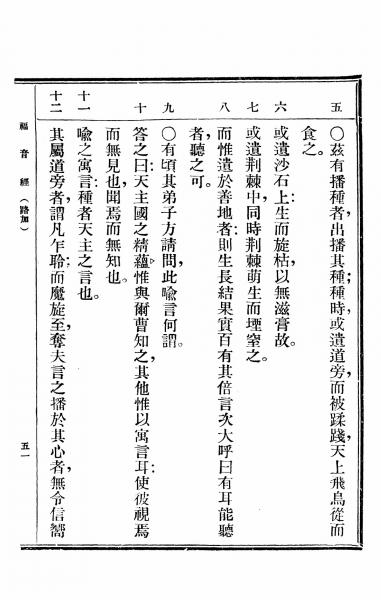 五
○茲有播種者,出播其種;種時,或遺道旁,而被蹂踐,天上飛鳥從而
食之。
六
或遺沙石上:生而旋枯,以無滋膏故。
七
或遺荆棘中,同時荆棘萌生而堙窒之。
八
而惟遺於善地者:則生長結果,實百有其倍。言次大呼曰:有耳能聽
者,聽之可。
九
○有頃其弟子方請問,此喩言何謂。
十
答之曰:天主國之精蘊,惟與爾曹知之,其他惟以寓言耳:使彼視焉
而無見也,聞焉而無知也。
十一
喩之寓言:種者天主之言也。
十二
其屬道旁者,謂凡乍聆,而魔旋至,奪夫言之播於其心者,無令信嚮
福音經(路加)
五一